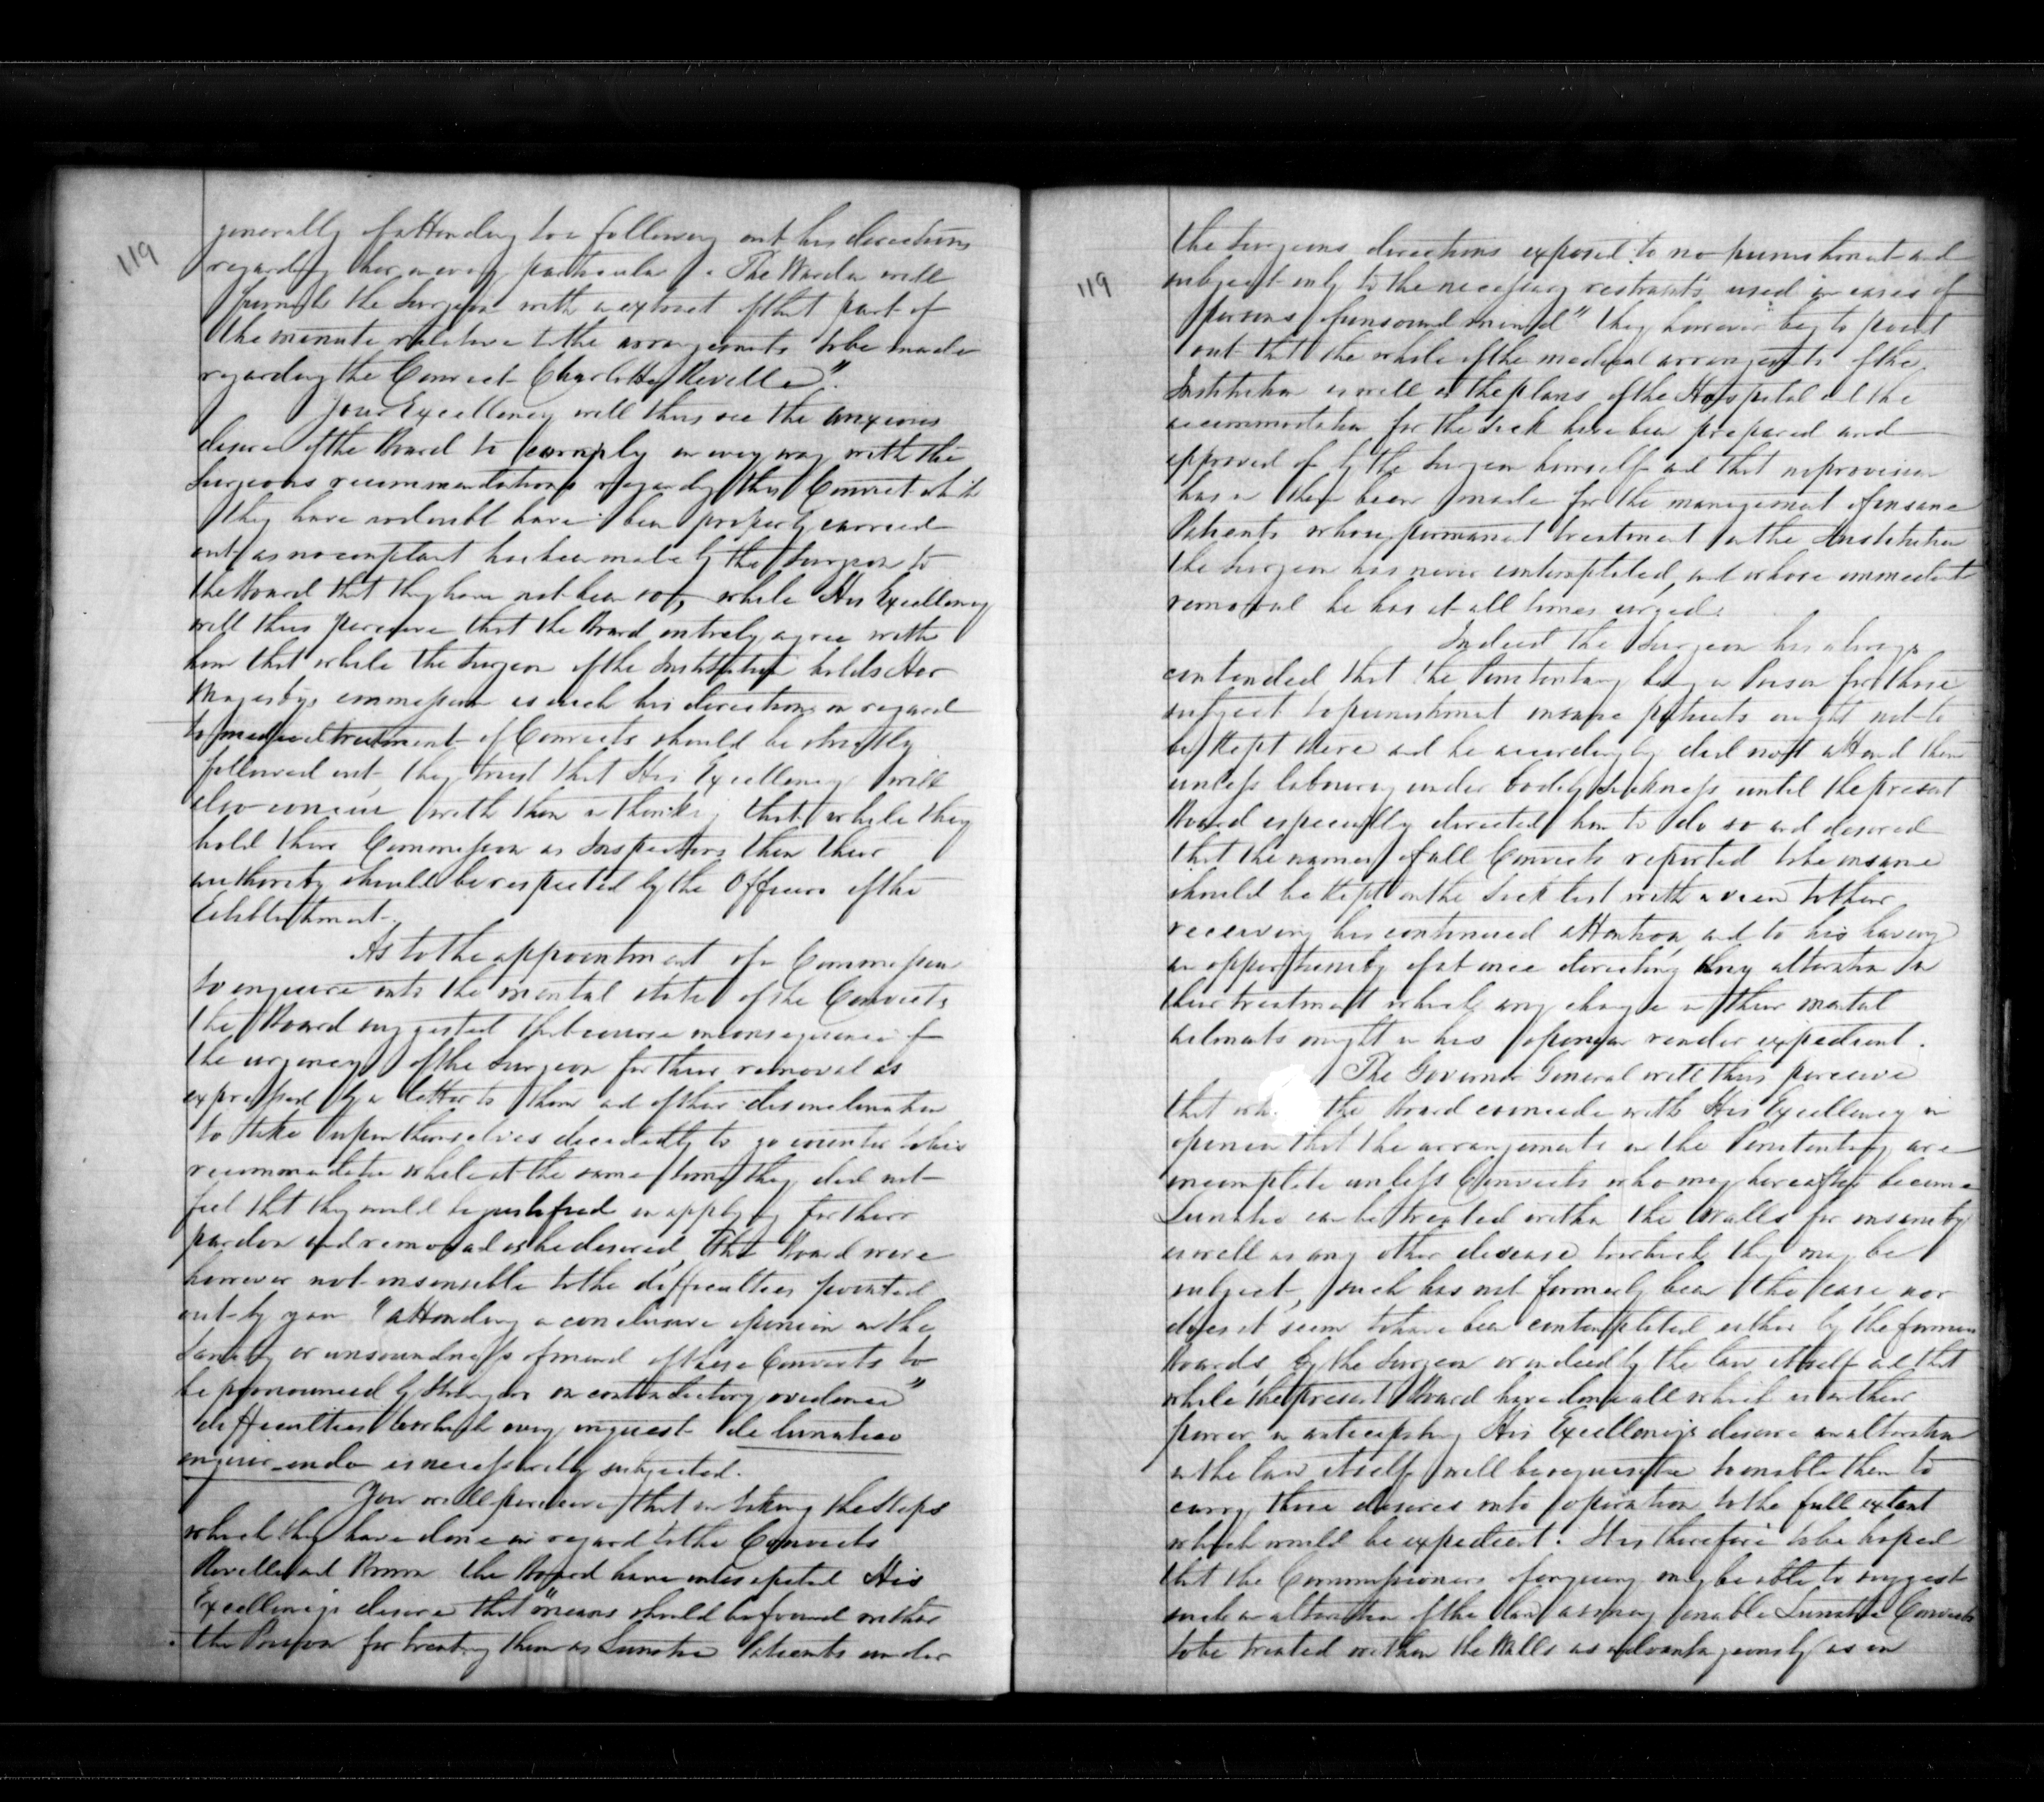 119
generally of attending to & following out his directions
regarding her in every particular. The Warden will
furnish the Surgeon with a extract of that part of
the minute relative to the arrangements to be made
regarding the Convict Charlotte Reveille".
Your Excellency will thus see the anxious
desire of the Board to comply in every way with the
Surgeons recommendations regarding this Convict which
they have no doubt have been properly carried
out as no complaint has been made by the Surgeon to
the Board that they have not been so, while His Excellency
will thus perceive that the Board entirely agree with
him that while the Surgeon of the Institution holds Her
Majestys commission as such his directions in regard
to medical treatment of Convicts should be strictly
followed out, they trust that His Excellency will
also concur with them in thinking that while they
hold their Commission as Inspectors then their
authority should be respected by the Officers of the
Establishment.
As to the appointment of a Commission
to enquire into the mental state of the Convicts
the Board suggested that course in consequence of
the urgency of the Surgeon for their removal as
expressed by a letter to them and of their disinclination
to take upon themselves decidedly to go counter to his
recommendation while at the same time they did not
feel that they would be justified in applying for their
pardon and removal as he desired, The Board were
however not insensible to the difficulties pointed
out by you "attending a conclusive opinion on the
Sanity or unsoundness of mind of these Convicts to
be pronounced by Strangers on contradictory evidence"
difficulties to which every inquest de lunatico
inquirendo is necessarily subjected.
You will perceive that in taking the steps
which they have done in regard to the Convicts
Reveille and Brown the Board have anticipated His
Excellencys desire that "means should be found within
the Prison for treating them as Lunatic Patients under
119
the Surgeons directions exposed to no punishment and
subject only to the necessary restraints used in cases of
persons of unsound mind" they however beg to point
out that the whole of the medical arrangements of the
Institution as well as the plans of the Hospital and the
accommodation for the Sick have been prepared and
approved of by the Surgeon himself and that no provision
has in them been made for the management of insane
Patients whose permanent treatment in the Institution
the Surgeon has never contemplated, and whose immediate
removal he has at all times urged.
Indeed the Surgeon has always
contended that the Penitentiary being a Prison for those
subject to punishment insane patients ought not to
be kept there and he accordingly did not attend them
unless labouring under bodily sickness until the present
Board especially directed him to do so and desired
that the names of all Convicts reported to be insane
should be kept on the Sick list with a view to their
receiving his continued attention and to his having
an opportunity of at once directing any alteration in
their treatment which any change in their mental
ailments might in his opinion render expedient.
The Governor General will thus perceive
that the Board coincide with His Excellency in
opinion that the arrangements in the Penitentiary are
incomplete unless Convicts who may hereafter become
Lunatic can be treated within the Walls for insanity
as well as any other disease to which they may be
subject, such has not formerly been the case, nor
does it seem to have been contemplated either by the former
Boards, by the Surgeon or indeed by the law itself and that
while the present Board have done all which is in their
power in anticipating His Excellencys desire an alteration
in the law itself will be requisite to enable them to
carry those desires into operation to the full extent
which would be expedient. It is therefore to be hoped
that the Commissioners of enquiry may be able to suggest
such an alteration of the law as may enable Lunatic Convicts
to be treated within the Walls as advantageously as in